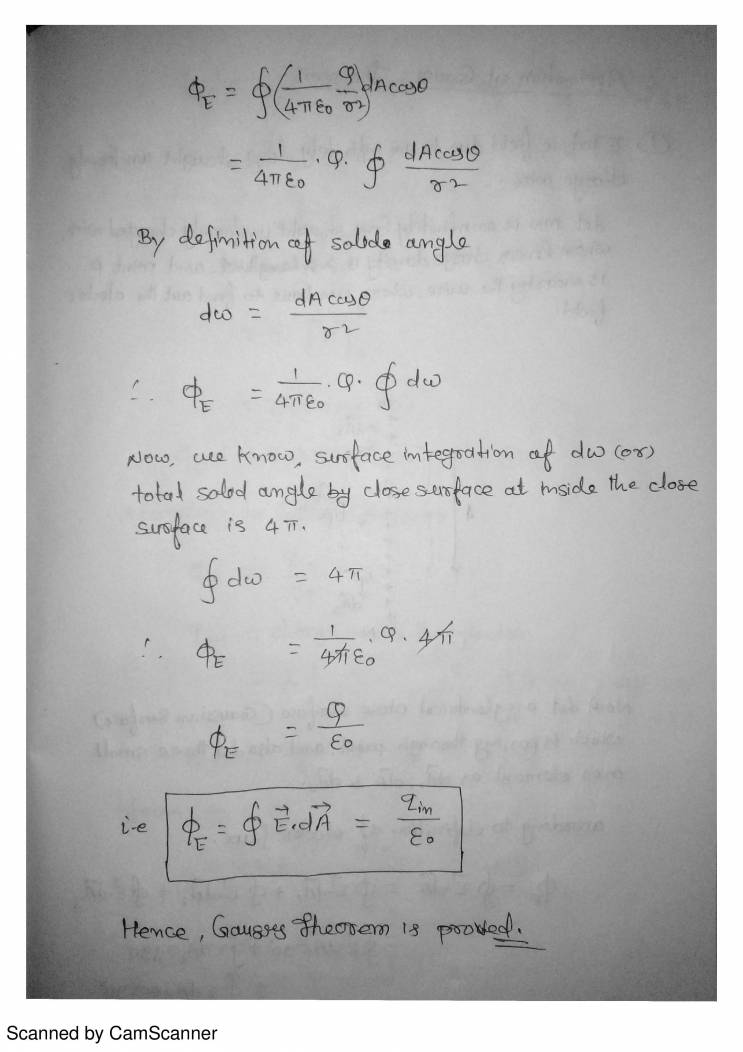 ϕ_E = ∮(1/4πε₀ φ/r²)dA cosθ
= 1/4πε₀ . φ. ∮ dA cosθ/r²
By definition of solide angle
dω = dA cosθ/r²
∴ ϕ_E = 1/4πε₀ . φ. ∮ dω
Now, we know, surface integration of dω (or)
total solod angle by close surface at inside the close
surface is 4π.
∮ dω = 4π
∴ ϕ_E = 1/4πε₀ . φ. 4π
ϕ_E = φ/ε₀
i-e ϕ_E = ∮ E⃗.dA⃗ = q_in/ε₀
Hence, Gausses Theorem is proved.
Scanned by CamScanner